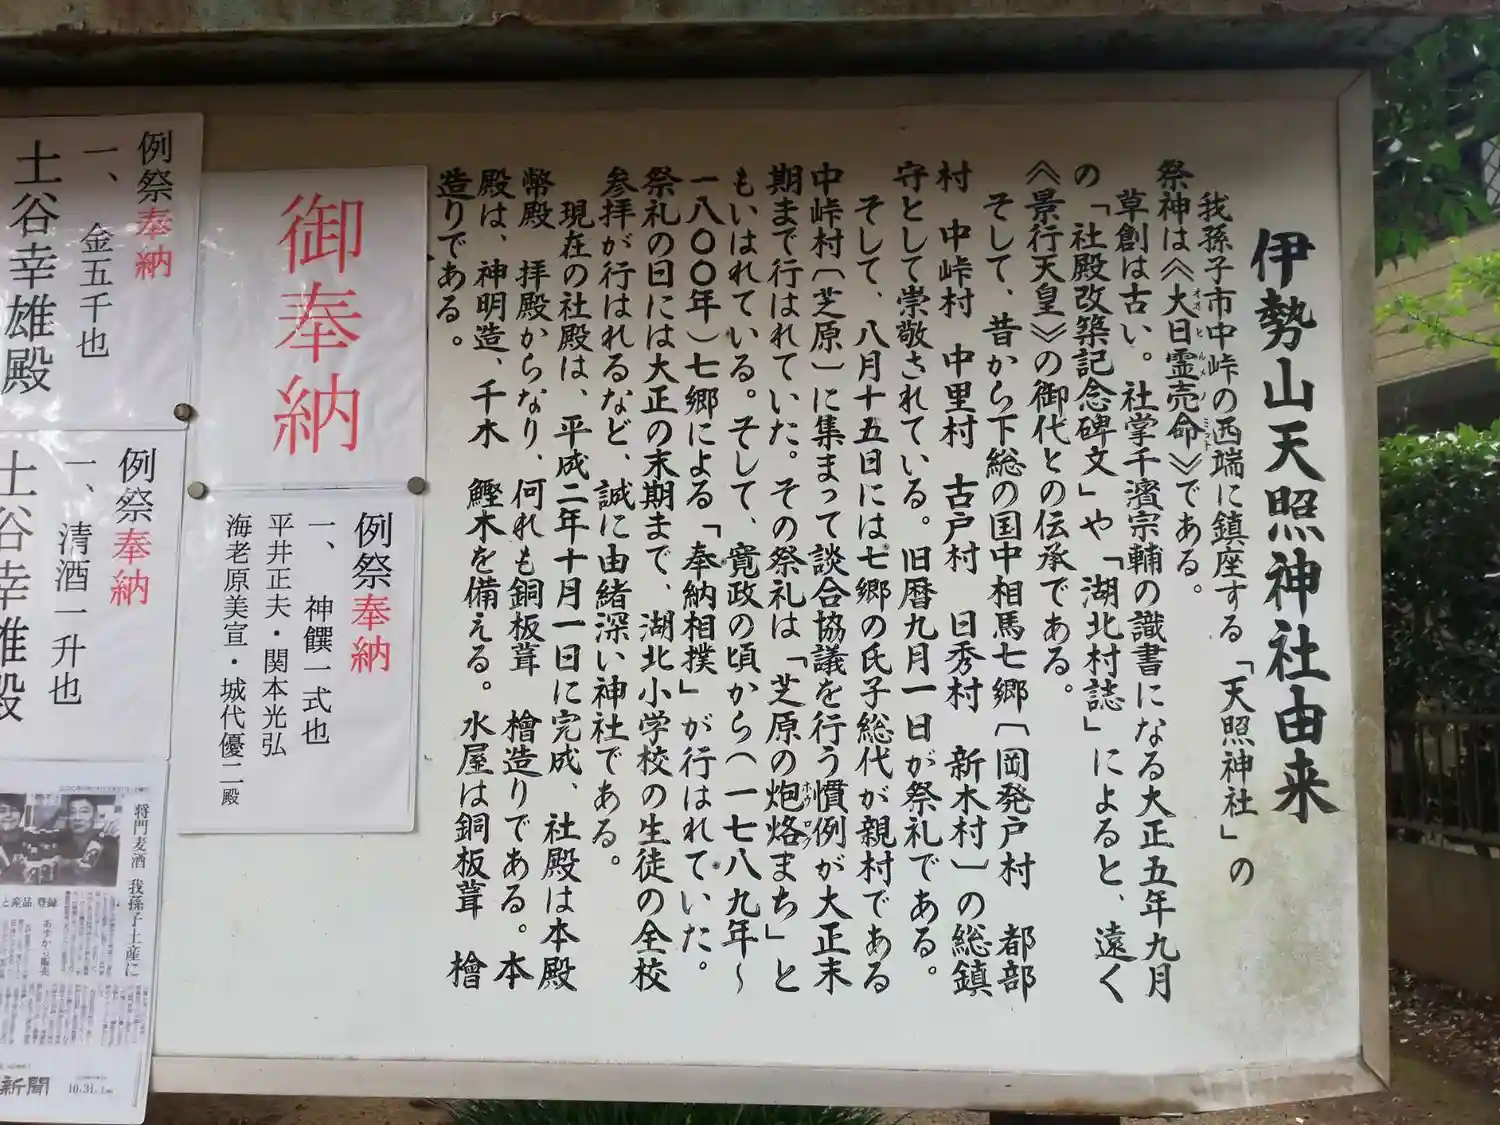 伊勢山天照神社由来
我孫子市中峠の西端に鎮座する「天照神社」の
祭神は《大日霊売命》である。
オオヒルメノミコト
草創は古い。社掌千濱宗輔の識書になる大正五年九月
の「社殿改築記念碑文」や「湖北村誌」によると、遠く
《景行天皇》の御代との伝承である。
そして、昔から下総の国中相馬七郷〔岡発戸村 都部
村 中峠村 中里村 古戸村 日秀村 新木村〕の総鎮
守として崇敬されている。旧暦九月一日が祭礼である。
そして、八月十五日には七郷の氏子総代が親村である
中峠村〔芝原〕に集まって談合協議を行う慣例が大正末
期まで行はれていた。その祭礼は「芝原の炮烙まち」と
ホウロク
もいはれている。そして、寛政の頃から(一七八九年~
一八〇〇年)七郷による「奉納相撲」が行はれていた。
祭礼の日には大正の末期まで、湖北小学校の生徒の全校
参拝が行はれるなど、誠に由緒深い神社である。
現在の社殿は、平成二年十月一日に完成、社殿は本殿
幣殿 拝殿からなり、何れも銅板葺 檜造りである。本
殿は、神明造、千木 鰹木を備える。水屋は銅板葺 檜
造りである。
御奉納
例祭奉納
一、 神饌一式也
平井正夫・関本光弘
海老原美宣・城代優二殿
例祭奉納
一、 金五千也
土谷幸雄殿
例祭奉納
一、 清酒一升也
土谷幸雄殿
将門麦酒 我孫子土産に
あすから販売
新聞
10.31.